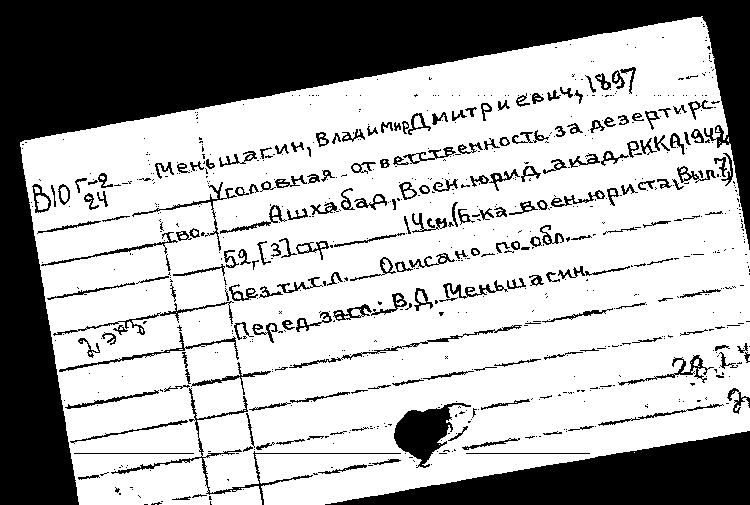 Меньшагин, Владимир Дмитриевич, 1897
В10 Г-2
24
Уголовная ответственность за дезертирс-
тво. Ашхабад, Воен. юрид. акад. РККА, 1942.
52, [3] стр. 14см. (Б-ка воен. юриста, Вып. 7)
Без тит. л. Описано по обл.
Перед загл.: В.Д. Меньшагин.
2 экз
28 I 4